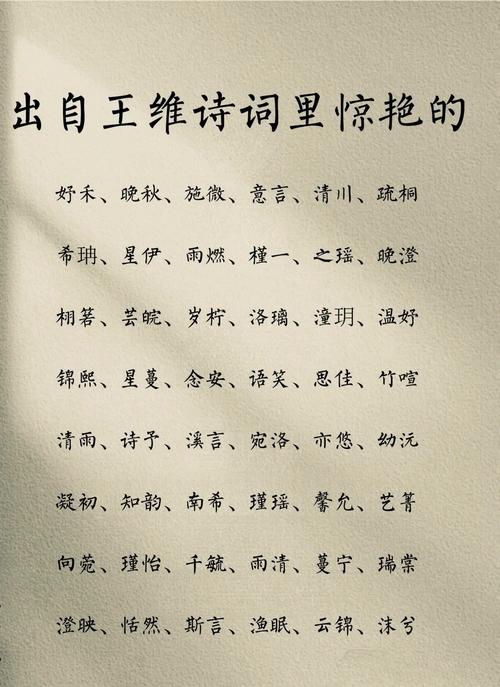 出自王维诗词里惊艳的
妤禾、晚秋、施微、意言、清川、疏桐
希玬、星伊、雨燃、槿一、之瑶、晚澄
栩箬、芸皖、岁柠、洛璃、潼玥、温妤
锦熙、星蔓、念安、语笑、思佳、竹喧
清雨、诗予、溪言、宛洛、亦悠、幼沅
凝初、知韵、南希、瑾瑶、馨允、艺菁
向菀、瑾怡、千毓、雨清、蔓宁、瑞棠
澄映、恬然、斯言、渔眠、云锦、沫兮